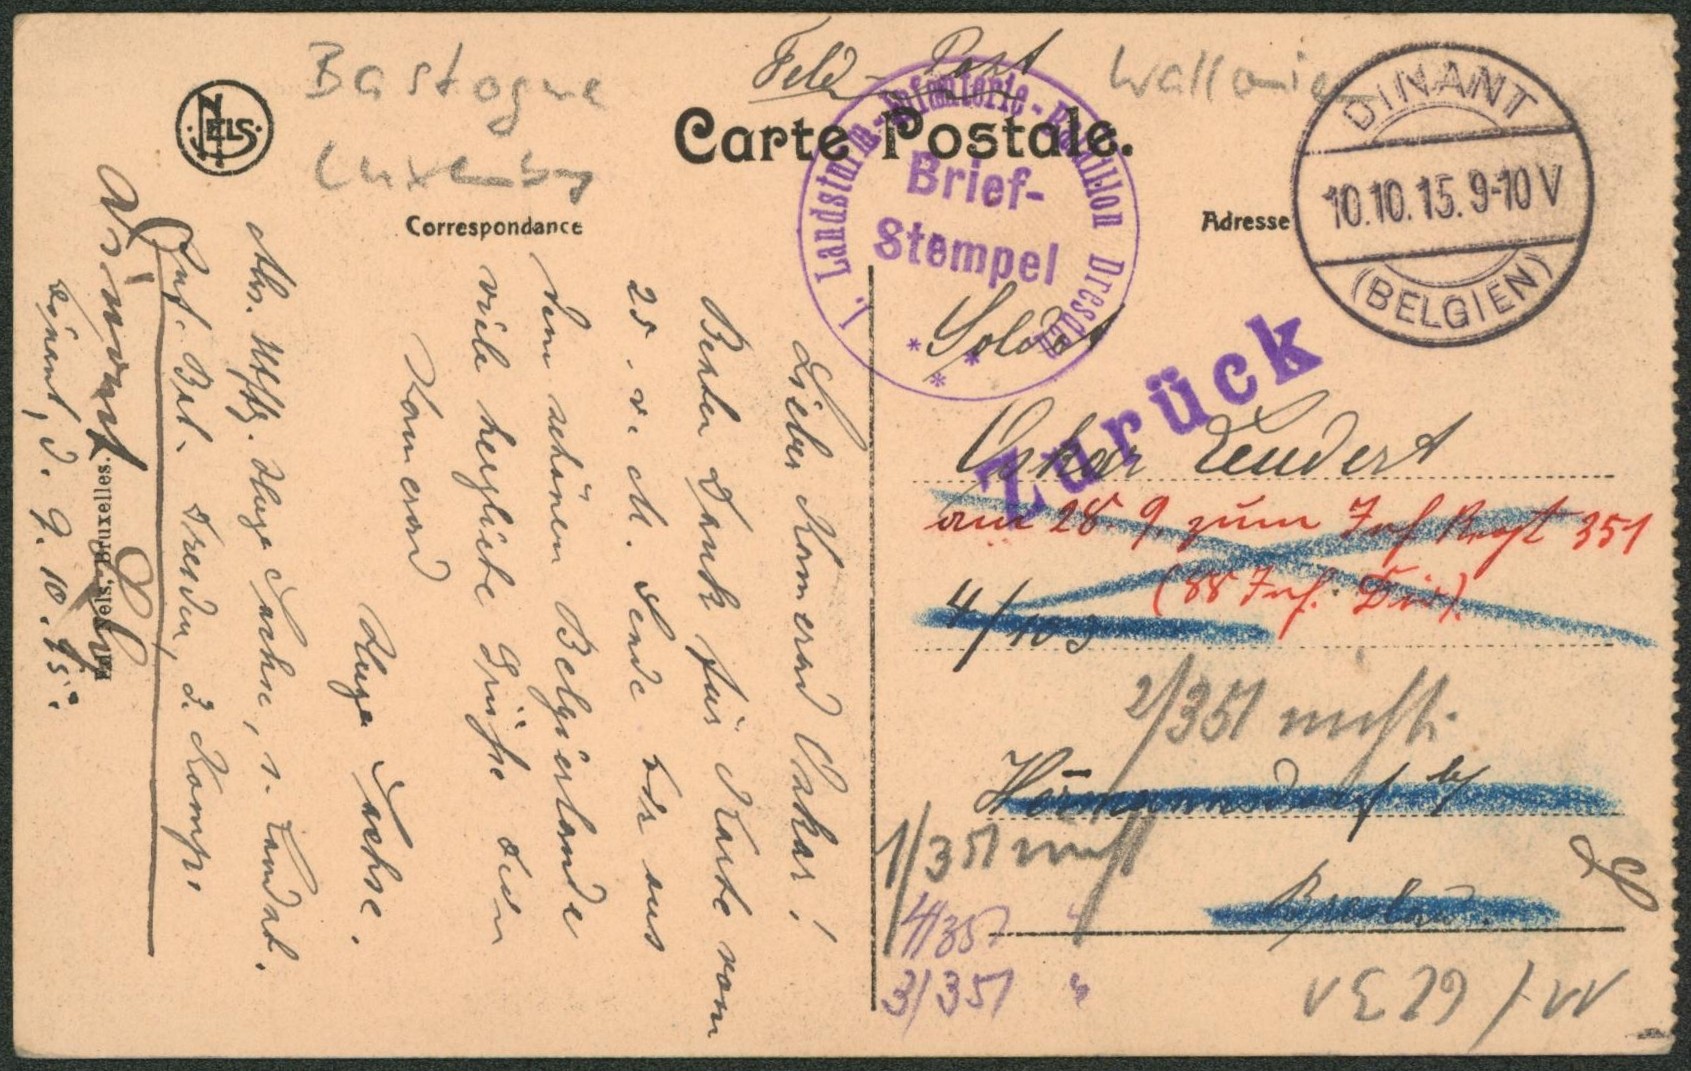 Bastogne
Luxemburg
Feld-Post
Wallonien
NELS
Carte Postale.
Correspondance
Adresse
1. Landsturm-Infanterie-Bataillon Dresden
Brief-
Stempel
* * *
DINANT
10.10.15. 9-10 V
(BELGIEN)
Zurück
Soldat
Oskar
am 28. 9. zum Inf Regt 351
(88 Inf. Div).
4/103
2/351 nicht
1/351 nicht
4/351 "
3/351 "
Breslau.
Lieber Kamerad Oskar!
Besten Dank für Karte vom
25. v. M. Sende Dir aus
dem schönen Belgierlande
viele herzliche Grüße Dein
Kamerad
Hugo Sachse.
Abs. Hugo Sachse, 1. Landst.
Inf. Bat. Dresden, 2. Komp.
Dinant, d. 9. 10. 15.
Dinant
Ed. Nels, Bruxelles.